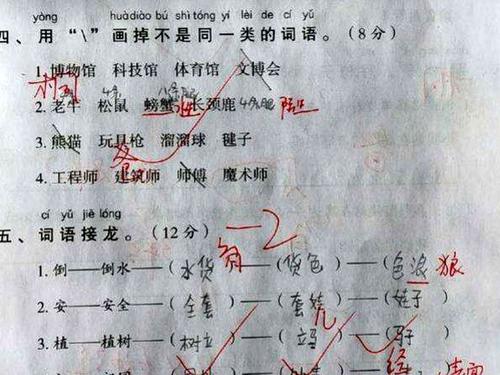 yòng huàdiào bú shì tóng yí lèi de cí yǔ
四、用"\"画掉不是同一类的词语。(8分)
1. 博物馆 科技馆 体育馆 文博会
4条 八条腿
2. 老牛 松鼠 螃蟹 长颈鹿 4条腿
3. 熊猫 玩具枪 溜溜球 毽子
4. 工程师 建筑师 师傅 魔术师
cí yǔ jiē lóng
五、词语接龙。(12分) -2
1. 倒——倒水——(水货)——(货色)——(色浪) 狼
2. 安——安全——(全套)——(套娃)——(娃子) 儿
3. 植——植树——(树立)——(立马)——(马子)